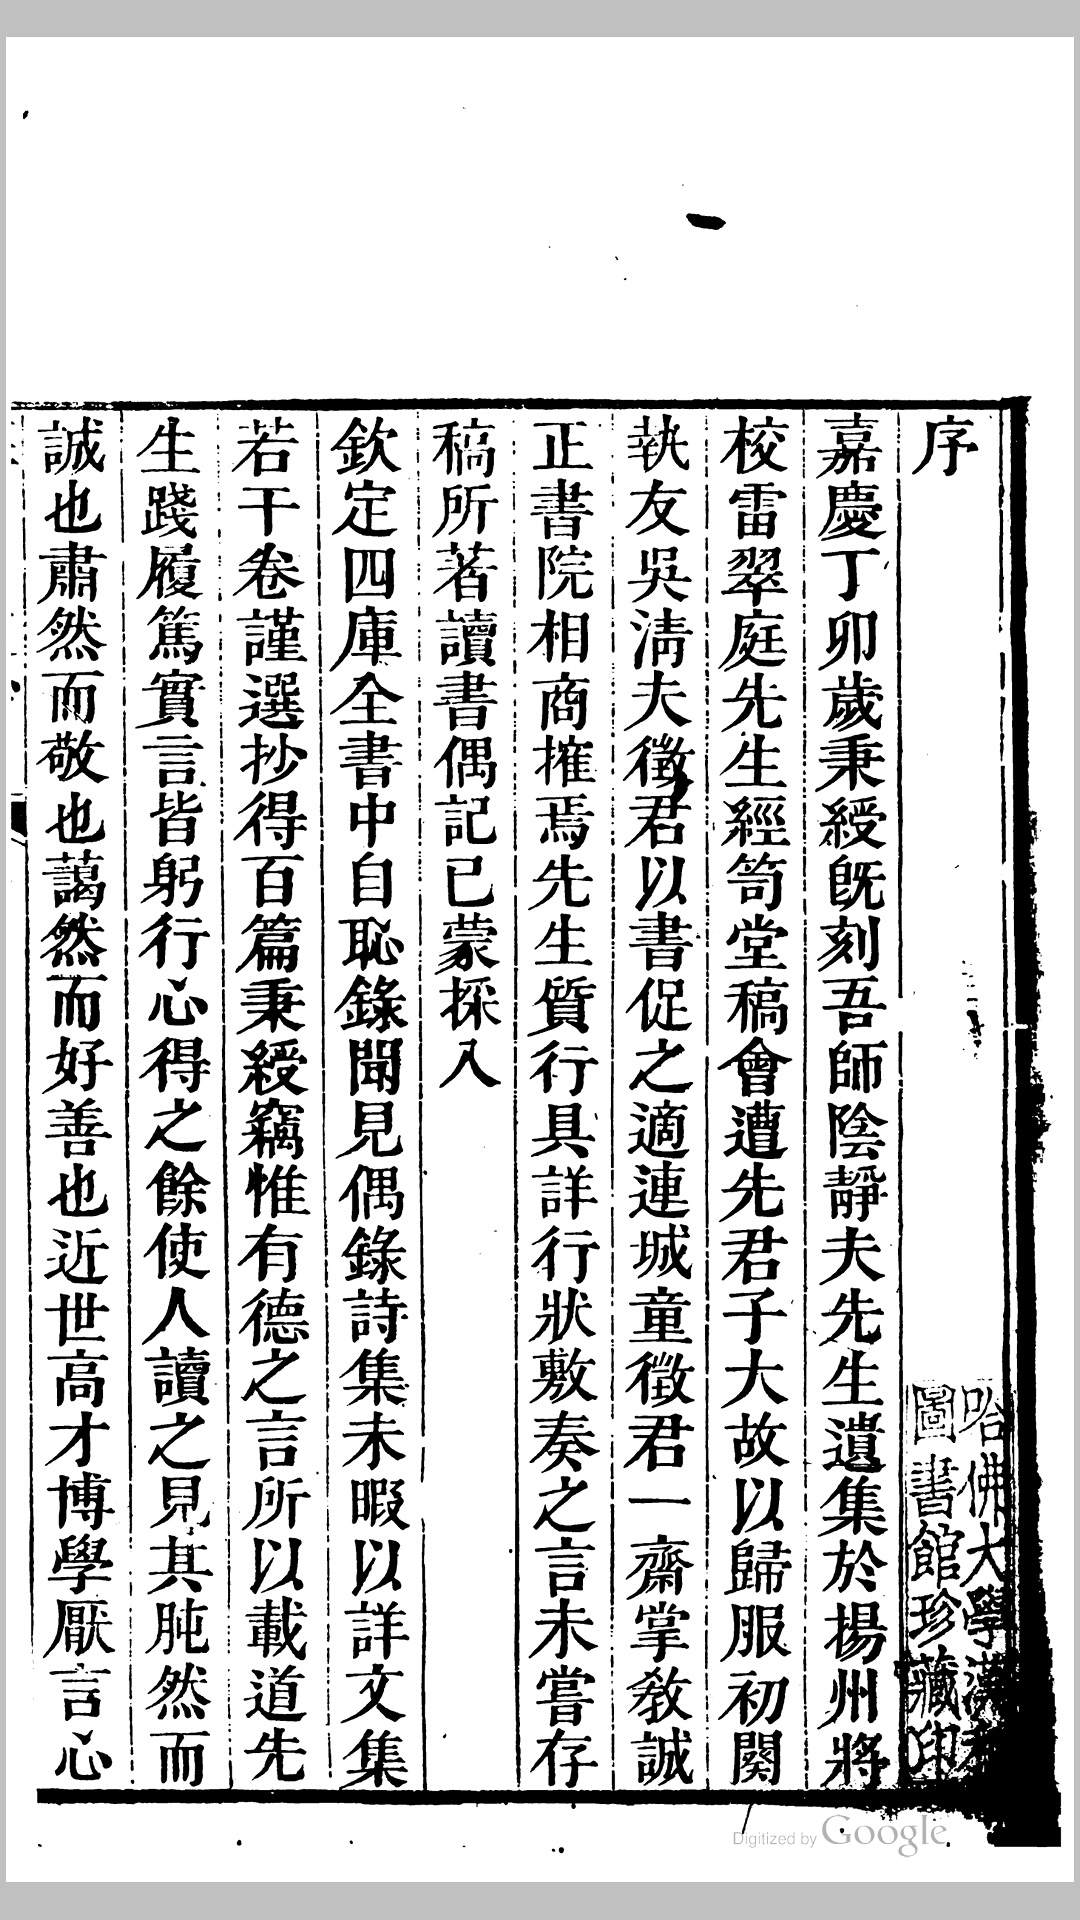 序
嘉慶丁卯歲秉綬旣刻吾師陰靜夫先生遺集於揚州將
校雷翠庭先生經笥堂稿會遭先君子大故以歸服初闋
執友吳淸夫徵君以書促之適連城童徵君一齋掌敎誠
正書院相商搉焉先生質行具詳行狀敷奏之言未嘗存
稿所著讀書偶記已蒙採入
欽定四庫全書中自恥錄聞見偶錄詩集未暇以詳文集
若干卷謹選抄得百篇秉綬竊惟有德之言所以載道先
生踐履篤實言皆躬行心得之餘使人讀之見其肫然而
誠也肅然而敬也藹然而好善也近世高才博學厭言心
哈佛大學漢和
圖書館珍藏印
Digitized by Google